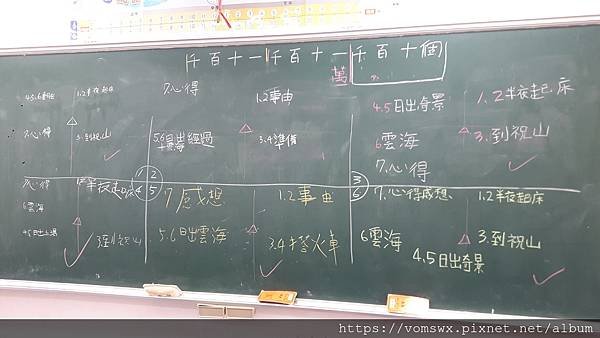 千百十一千百十一千百十個
萬
4.5.6
1.2半夜起床
7.心得
3.到祝山
①
7心得
1.2事由
5.6日出經過
+雲海
3.4準備
2
4.5日出奇景
1.2半夜起床
6雲海
3.到祝山
7.心得
3
7心得
半夜起床
4
6雲海
3到祝山
5
7.感想
1.2事由
5.6日出雲海
3.4搭火車
6
7.心得感想
1.2半夜起床
6雲海
3.到祝山
4.5日出奇景
https://vomswx.pixnet.net/album